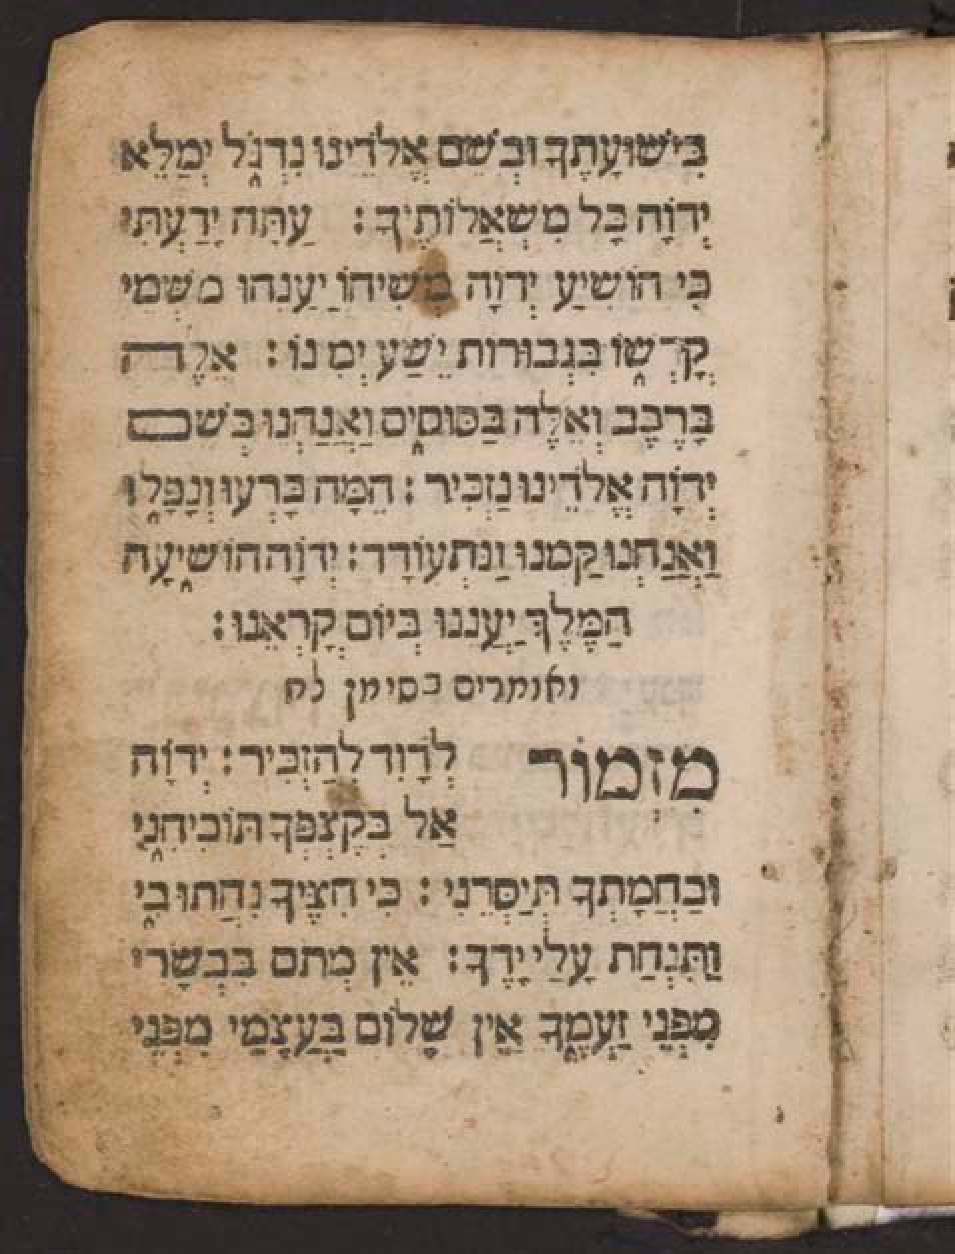 בִּישׁוּעָתֶךָ וּבְשֵׁם אֱלֹדֵינוּ נִדְגֹל יְמַלֵּא
יְדוָֹה כָּל מִשְׁאֲלוֹתֶיךָ : עַתָּה יָדַעְתִּי
כִּי הוֹשִׁיעַ יְדוָה מְשִׁיחוֹ יַעֲנֵהוּ מִשְּׁמֵי
קָדְשׁוֹ בִּגְבוּרוֹת יֵשַׁע יְמִנוֹ : אֵלֶּה
בָּרֶכֶב וְאֵלֶּה בַּסּוּסִים וַאֲנַחְנוּ בְּשֵׁם
יְדוָֹה אֱלֹדֵינוּ נַזְכִּיר : הֵמָּה כָּרְעוּ וְנָפָלוּ
וַאֲנַחְנוּ קַּמְנוּ וַנִּתְעוֹדָד : יְדוָֹה הוֹשִׁיעָה
הַמֶּלֶךְ יַעֲנֵנוּ בְּיוֹם קָרְאֵנוּ :
ואומרים בסימן לח
מִזְמוֹר לְדָוִד לְהַזְכִּיר : יְדוָֹה
אַל בְּקֶצְפְּךָ תוֹכִיחֵנִי
וּבַחֲמָתְךָ תְיַסְּרֵנִי : כִּי חִצֶּיךָ נִחֲתוּ בִי
וַתִּנְחַת עָלַי יָדֶךָ : אֵין מְתֹם בִּבְשָׂרִי
מִפְּנֵי זַעְמֶךָ אֵין שָׁלוֹם בַּעֲצָמַי מִפְּנֵי